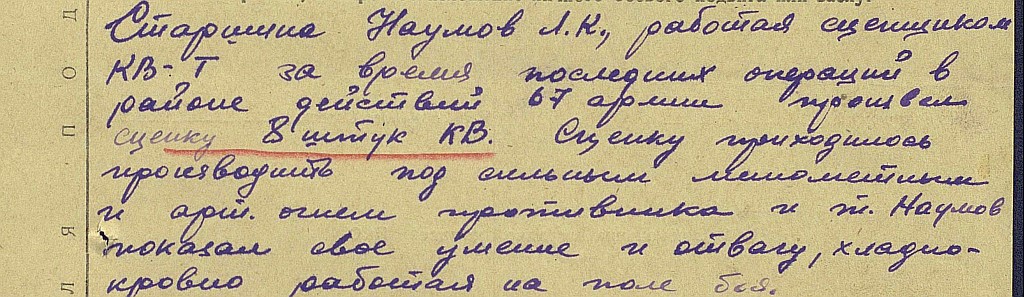 Старшина Наумов Л.К., работая сцепщиком
КВ-Т за время последних операций в
районе действий 67 армии произвел
сцепку 8 штук КВ. Сцепку приходилось
производить под сильным минометным
и арт. огнем противника и т. Наумов
показал свое умение и отвагу, хладно-
кровно работая на поле боя.
Д
О
П
Я
Л